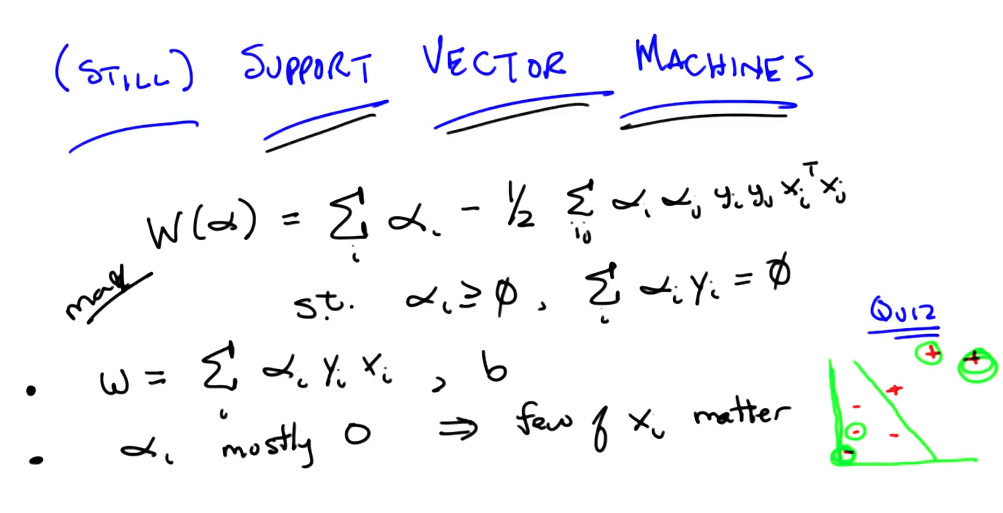 (STILL) SUPPORT VECTOR MACHINES
W(α) = ∑ᵢ αᵢ - 1/2 ∑ᵢⱼ αᵢ αⱼ yᵢ yⱼ xᵢᵀ xⱼ
max
s.t. αᵢ ≥ ∅, ∑ᵢ αᵢ yᵢ = ∅
QUIZ
• w = ∑ᵢ αᵢ yᵢ xᵢ , b
• αᵢ mostly 0 ⇒ few of xᵢ matter